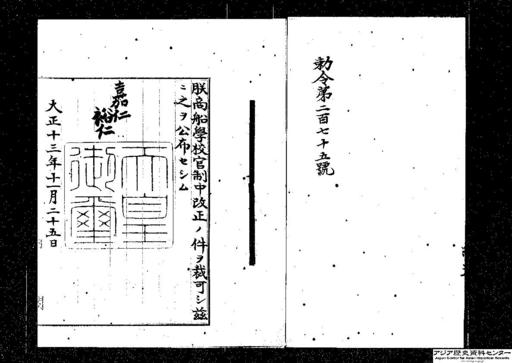 勅令第二百七十五號
朕商船學校官制中改正ノ件ヲ裁可シ茲
ニ之ヲ公布セシム
嘉仁
裕仁
天皇
御璽
大正十三年十一月二十五日
アジア歴史資料センター
Japan Center for Asian Historical Records